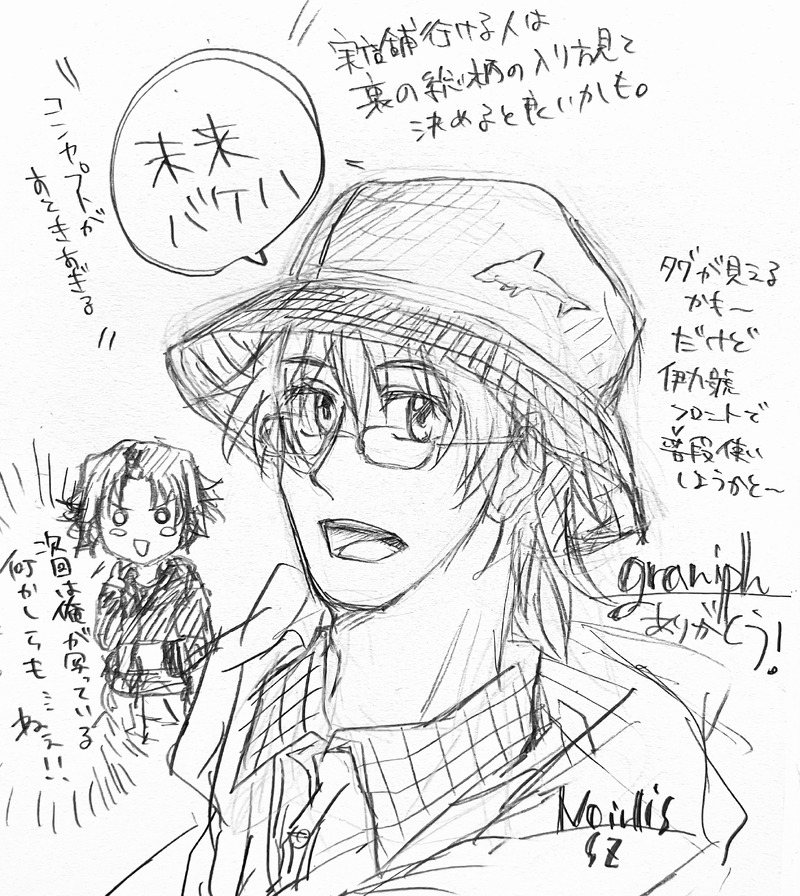 実店舗行ける人は
裏の総柄の入り方見て
決めると良いかも。
未来
バケハ
コンセプトが
すてきすぎる
タグが見える
かも〜
だけど
伊九號
フロントで
普段使い
しようかと〜
graniph
ありがとう!
次回は俺が写っている
何かしらも…ねぇ!!
SZ